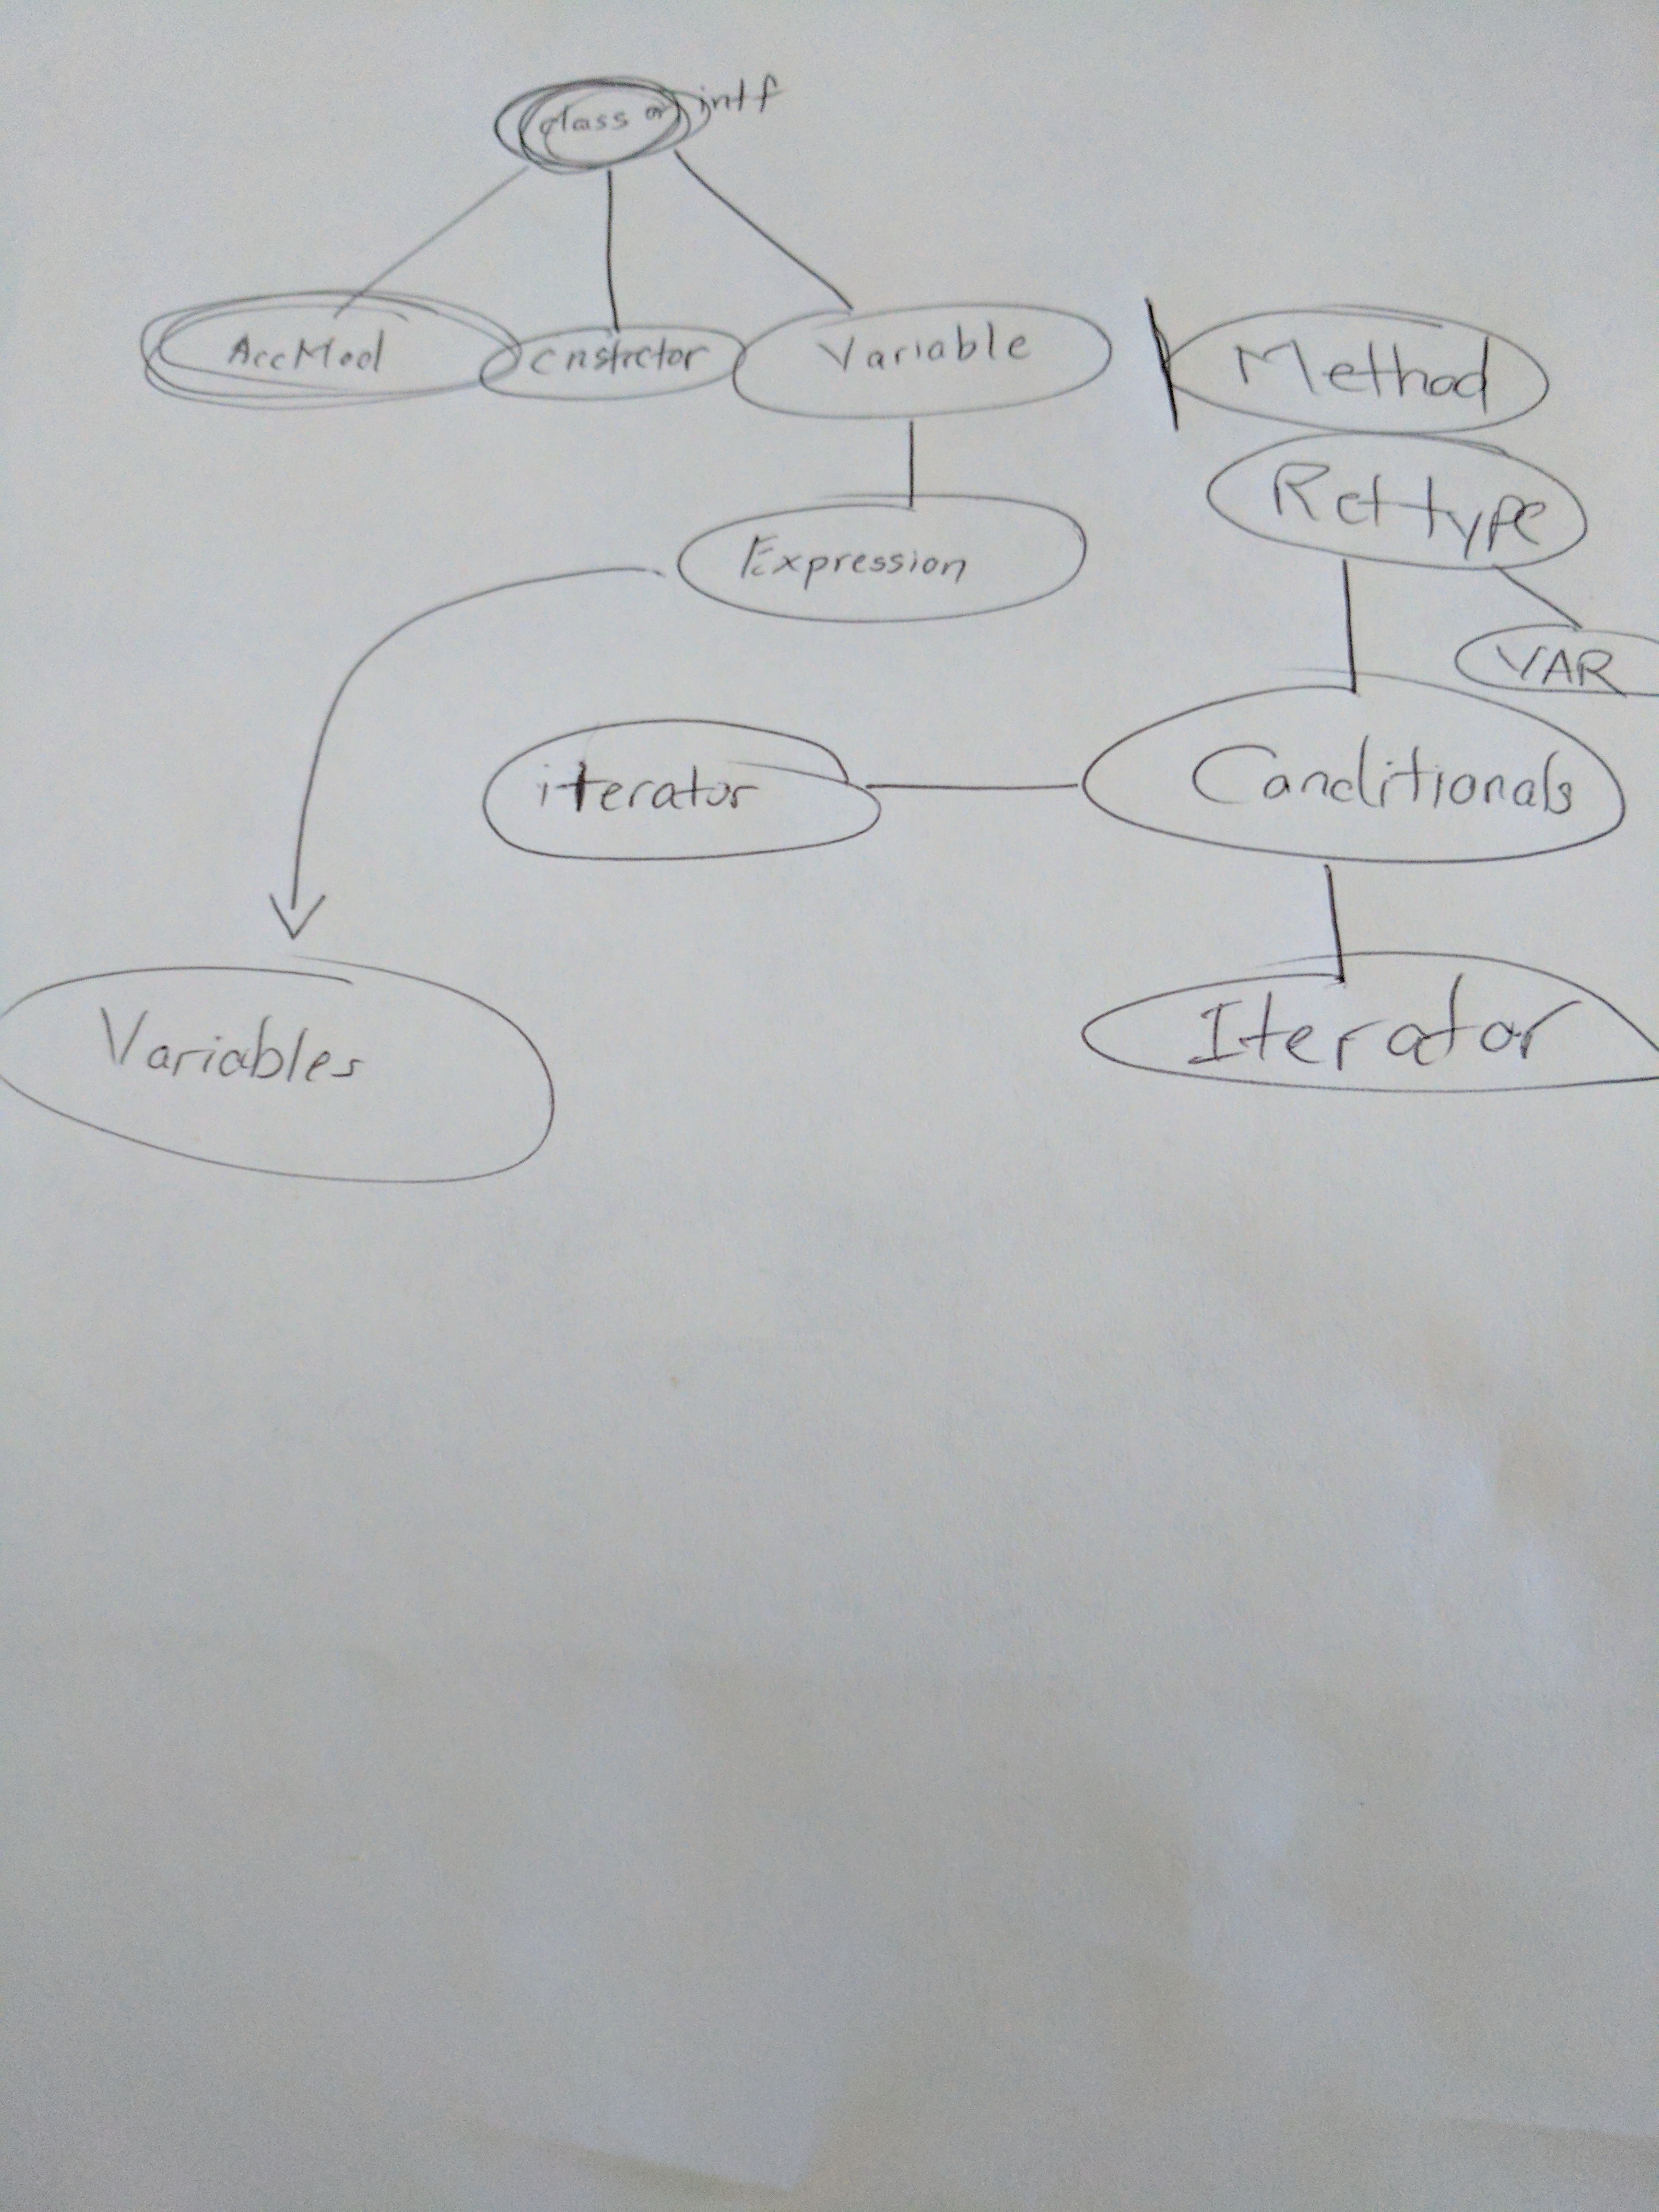 class or intf
AccMod
cnstrctor
Variable
Method
Rettype
Expression
VAR
iterator
Conditionals
Variables
Iterator